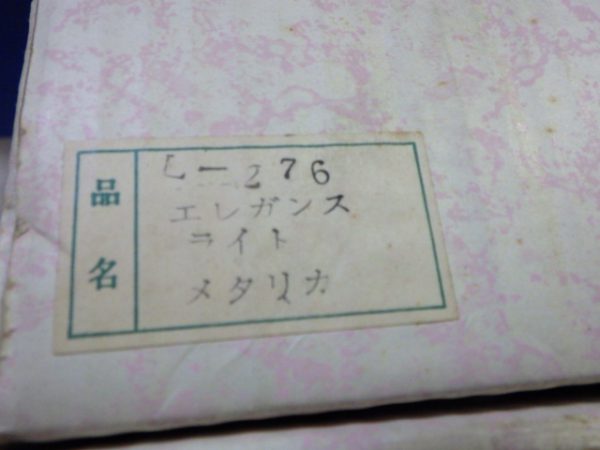 品名
L-276
エレガンス
ライト
メタリカ